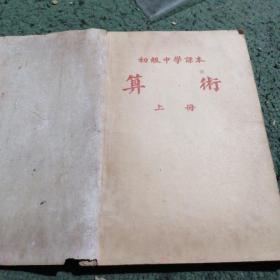 初級中學課本
算術
上冊